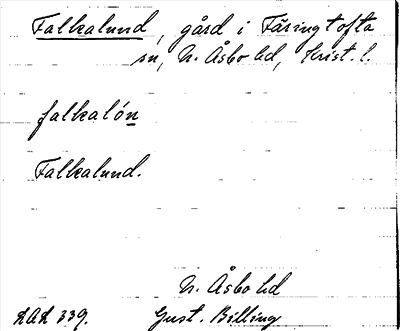 Falkalund, gård i Färingtofta
sn, N. Åsbo hd, Krist. l.
falkalón
Falkalund.
N. Åsbo hd
LAL 339. Gust. Billing